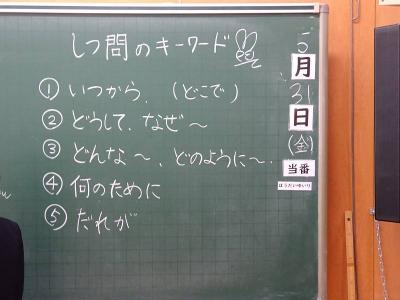 しつ問のキーワード
① いつから、(どこで)
② どうして、なぜ～
③ どんな～、どのように～.
④ 何のために
⑤ だれが
5
月
31
日
(金)
当番